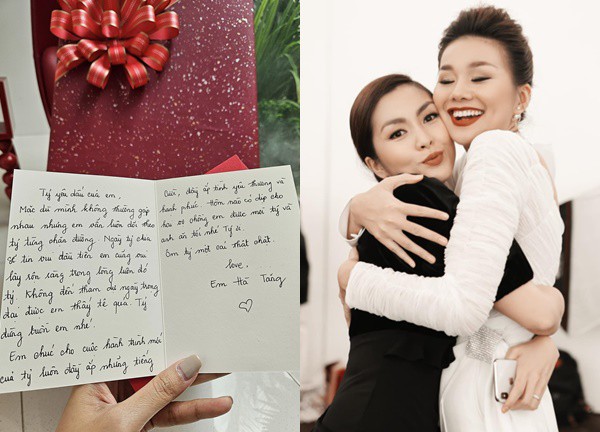 Tý yêu dấu của em,
Mặc dù mình không thường gặp
nhau nhưng em vẫn luôn dõi theo
tý từng chặn đường. Ngày tý chia
sẻ tin vui đầu tiên em cũng vui
lây rồi cũng trong lòng luôn đó
tý. Không đến tham dự ngày trọng
đại được em thấy tệ quá. Tý
đừng buồn em nhé!
Em chúc cho cuộc hành trình mới
của tý luôn đầy ắp những tiếng
Cười, đầy ắp tình yêu thương và
hạnh phúc. Hôm nào có dịp cho
hai vợ chồng em được mời tý và
anh ăn tối nhé Tý ú.
Ôm tý một cái thật chặt.
love,
Em Hà Tăng